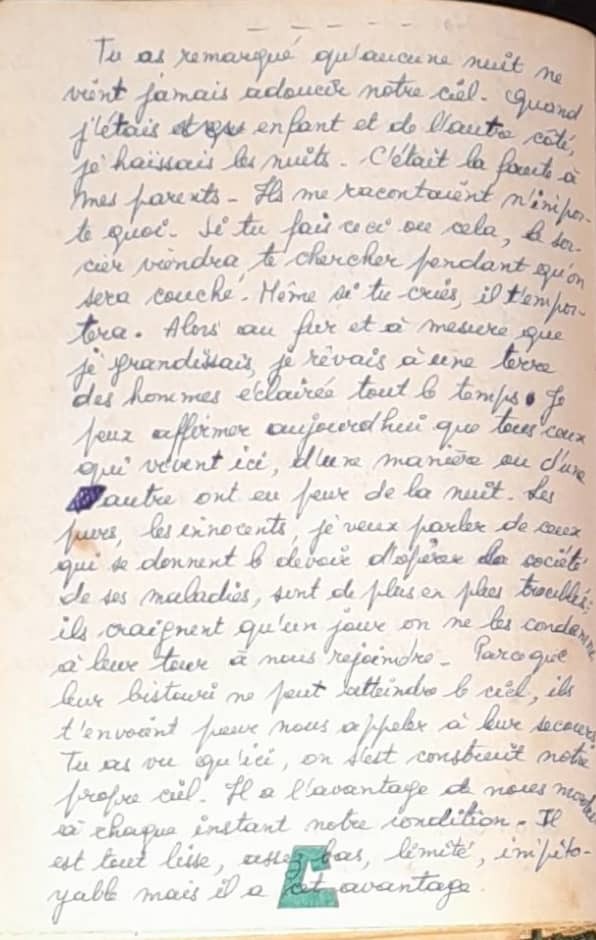 Tu as remarqué qu'aucune nuit ne
vient jamais adoucir notre ciel. Quand
j'étais enfant et de l'autre côté,
je haïssais les nuits. C'était la faute à
mes parents. Ils me racontaient n'impor-
te quoi. Si tu fais ceci ou cela, le sor-
cier viendra te chercher pendant qu'on
sera couché. Même si tu cries, il t'empor-
tera. Alors au fur et à mesure que
je grandissais, je rêvais à une terre
des hommes éclairée tout le temps. Je
peux affirmer aujourd'hui que tous ceux
qui vivent ici, d'une manière ou d'une
autre ont eu peur de la nuit. Les
purs, les innocents, je veux parler de ceux
qui se donnent le devoir d'opérer la société
de ses maladies, sont de plus en plus troublés;
ils craignent qu'un jour on ne les condamne
à leur tour à nous rejoindre. Parce que
leur bistouri ne peut atteindre le ciel, ils
t'envoient pour nous appeler à leur secours
Tu as vu qu'ici, on s'est construit notre
propre ciel. Il a l'avantage de nous
à chaque instant notre condition. Il
est tout lisse, assez bas, limité, impito-
yable mais il a cet avantage.